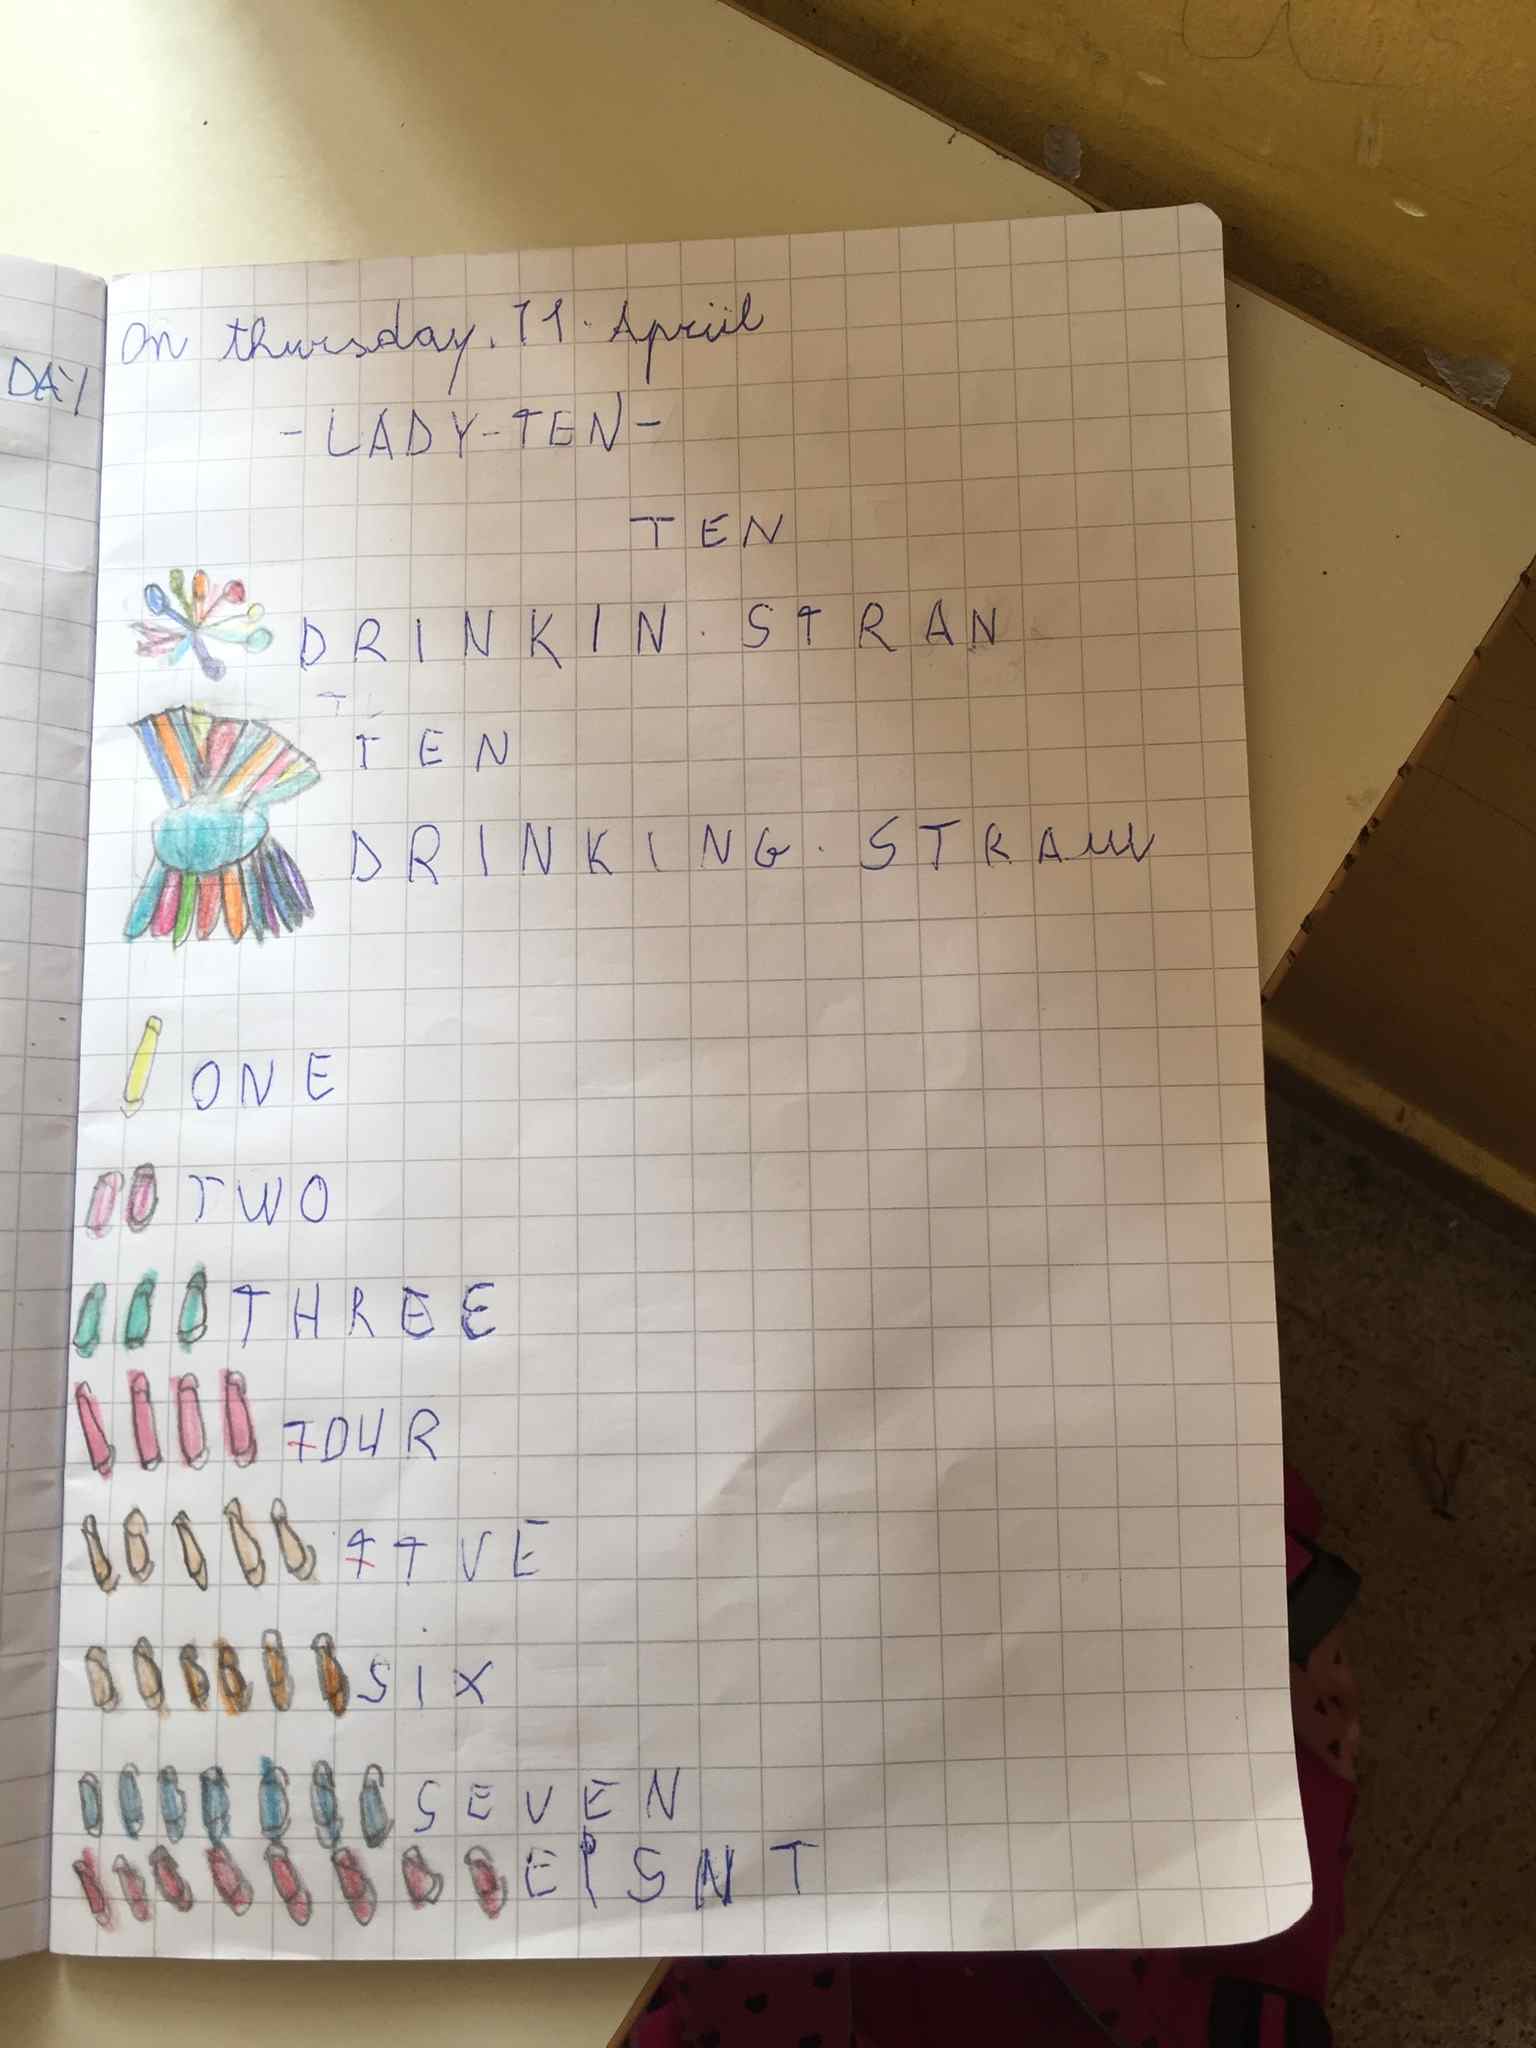 DAY
On thursday. 11. April
-LADY-TEN-
TEN
DRINKIN. STRAN
TEN
DRINKING. STRAW
ONE
TWO
THREE
FOUR
FTVE
SIX
SEVEN
EISNT